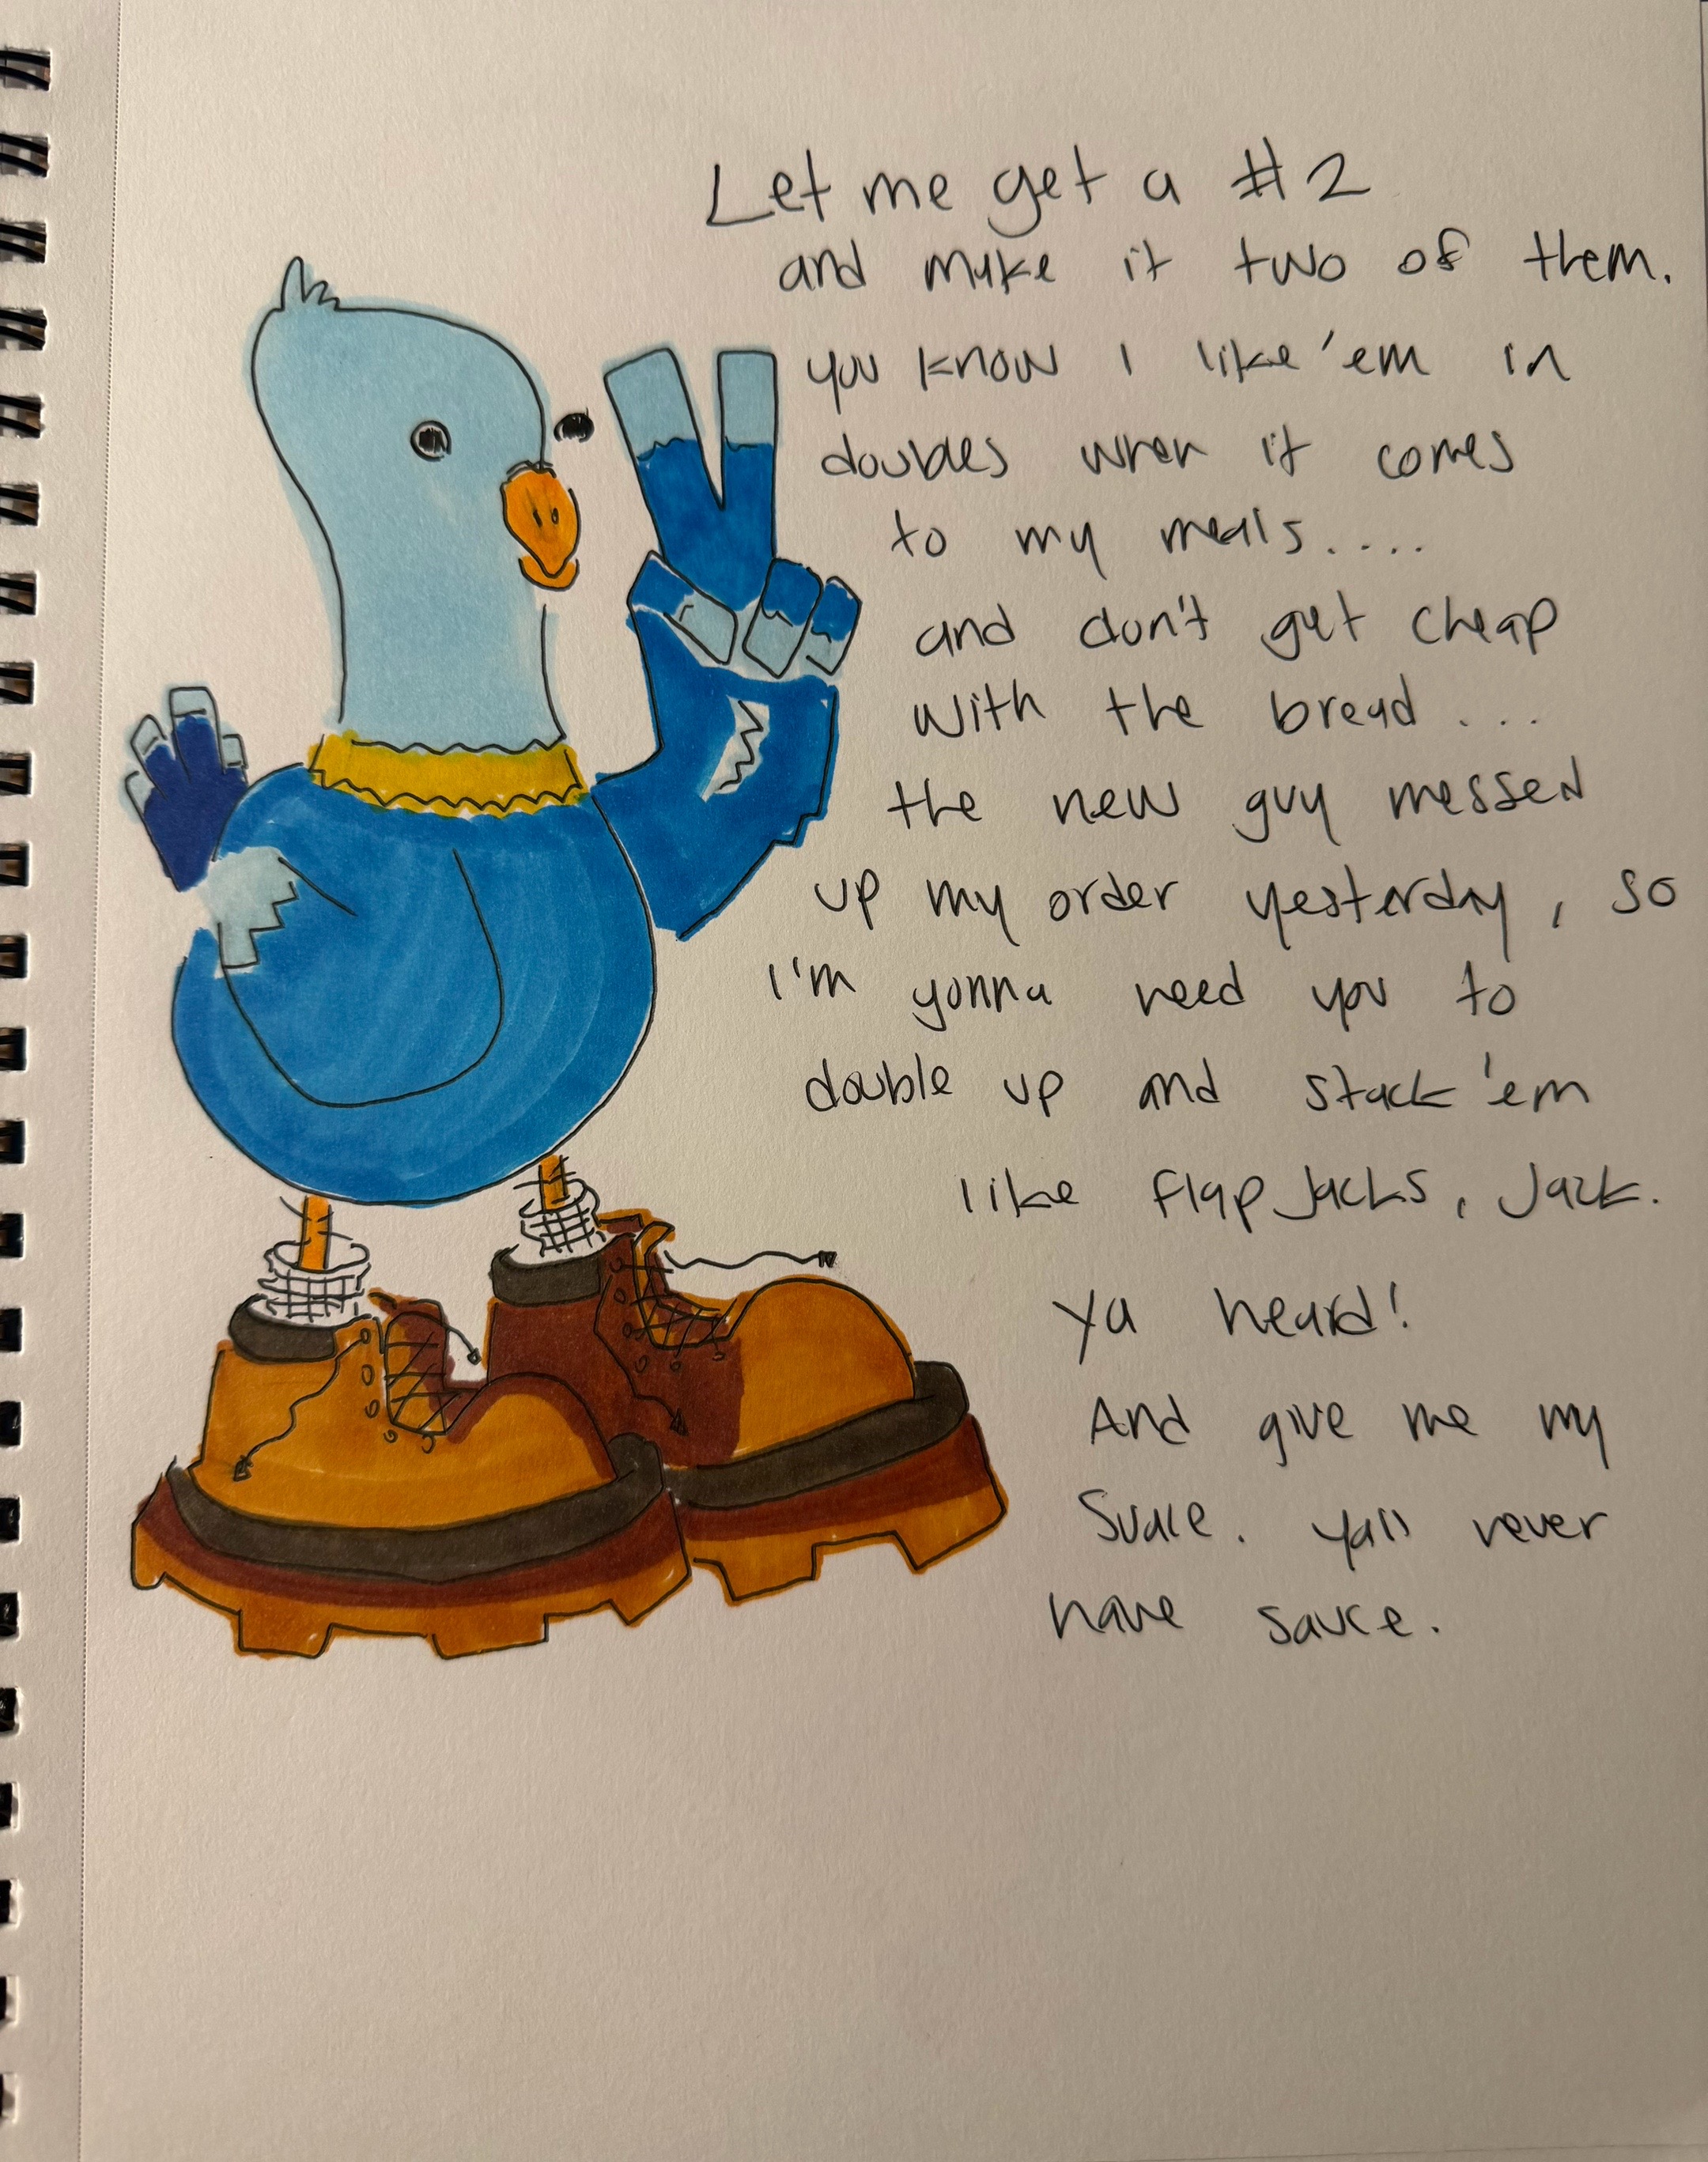 Let me get a #2
and make it two of them.
you know I like 'em in
doubles when it comes
to my meals....
and don't get cheap
with the bread...
the new guy messed
up my order yesterday, so
I'm gonna need you to
double up and stack 'em
like flap Jacks, Jack.
Ya heard!
And give me my
Sauce. Yall never
have sauce.